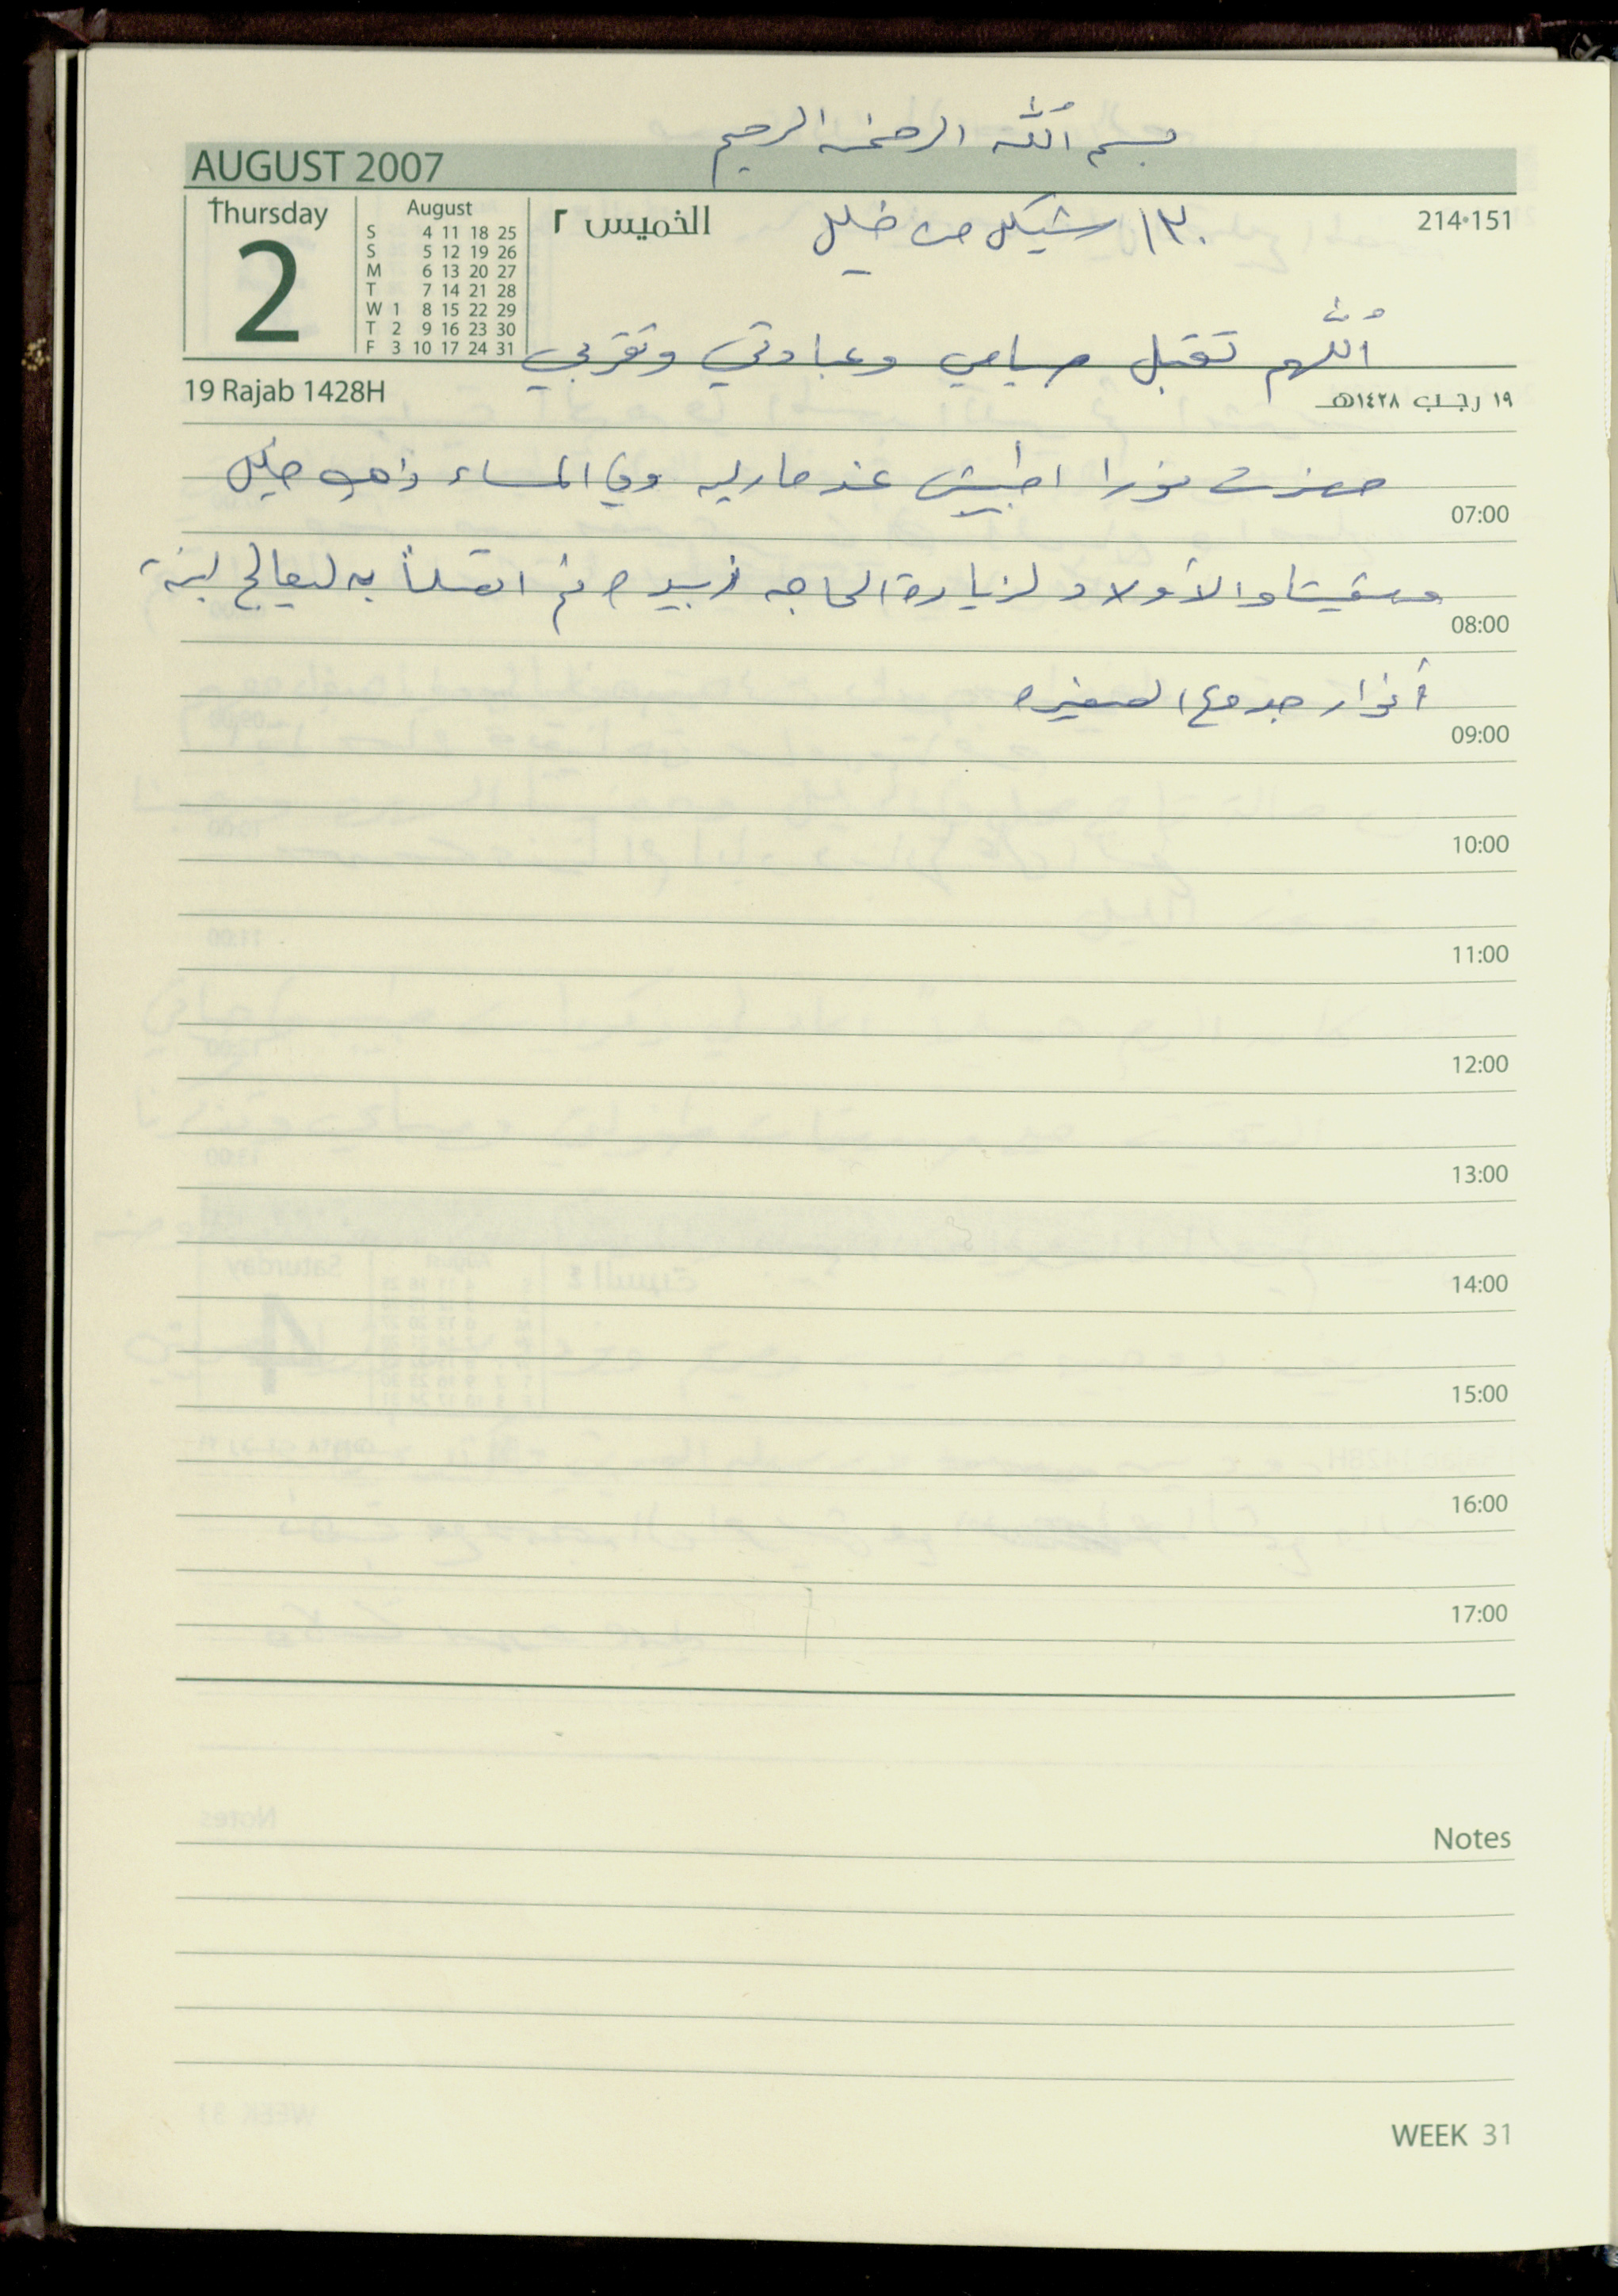 بسم الله الرحمن الرحيم
AUGUST 2007
Thursday
2
August
S 4 11 18 25
S 5 12 19 26
M 6 13 20 27
T 7 14 21 28
W 1 8 15 22 29
T 2 9 16 23 30
F 3 10 17 24 31
الخميس ٢
١٣٠ شيكل من خليل
214•151
اللهم تقبل صيامي وعبادتي وتقربي
19 Rajab 1428H
١٩ رجب ١٤٢٨هـ
حضرت نورا اطبيش عند ماريه وفي المساء ذهب خليل
07:00
وشقيقتا والأولاد لزيارة الحاجه زبيده ثم اتصلنا به ليعالج ابنة
08:00
أنوار جدوع الصغيره
09:00
10:00
11:00
12:00
13:00
14:00
15:00
16:00
17:00
Notes
WEEK 31